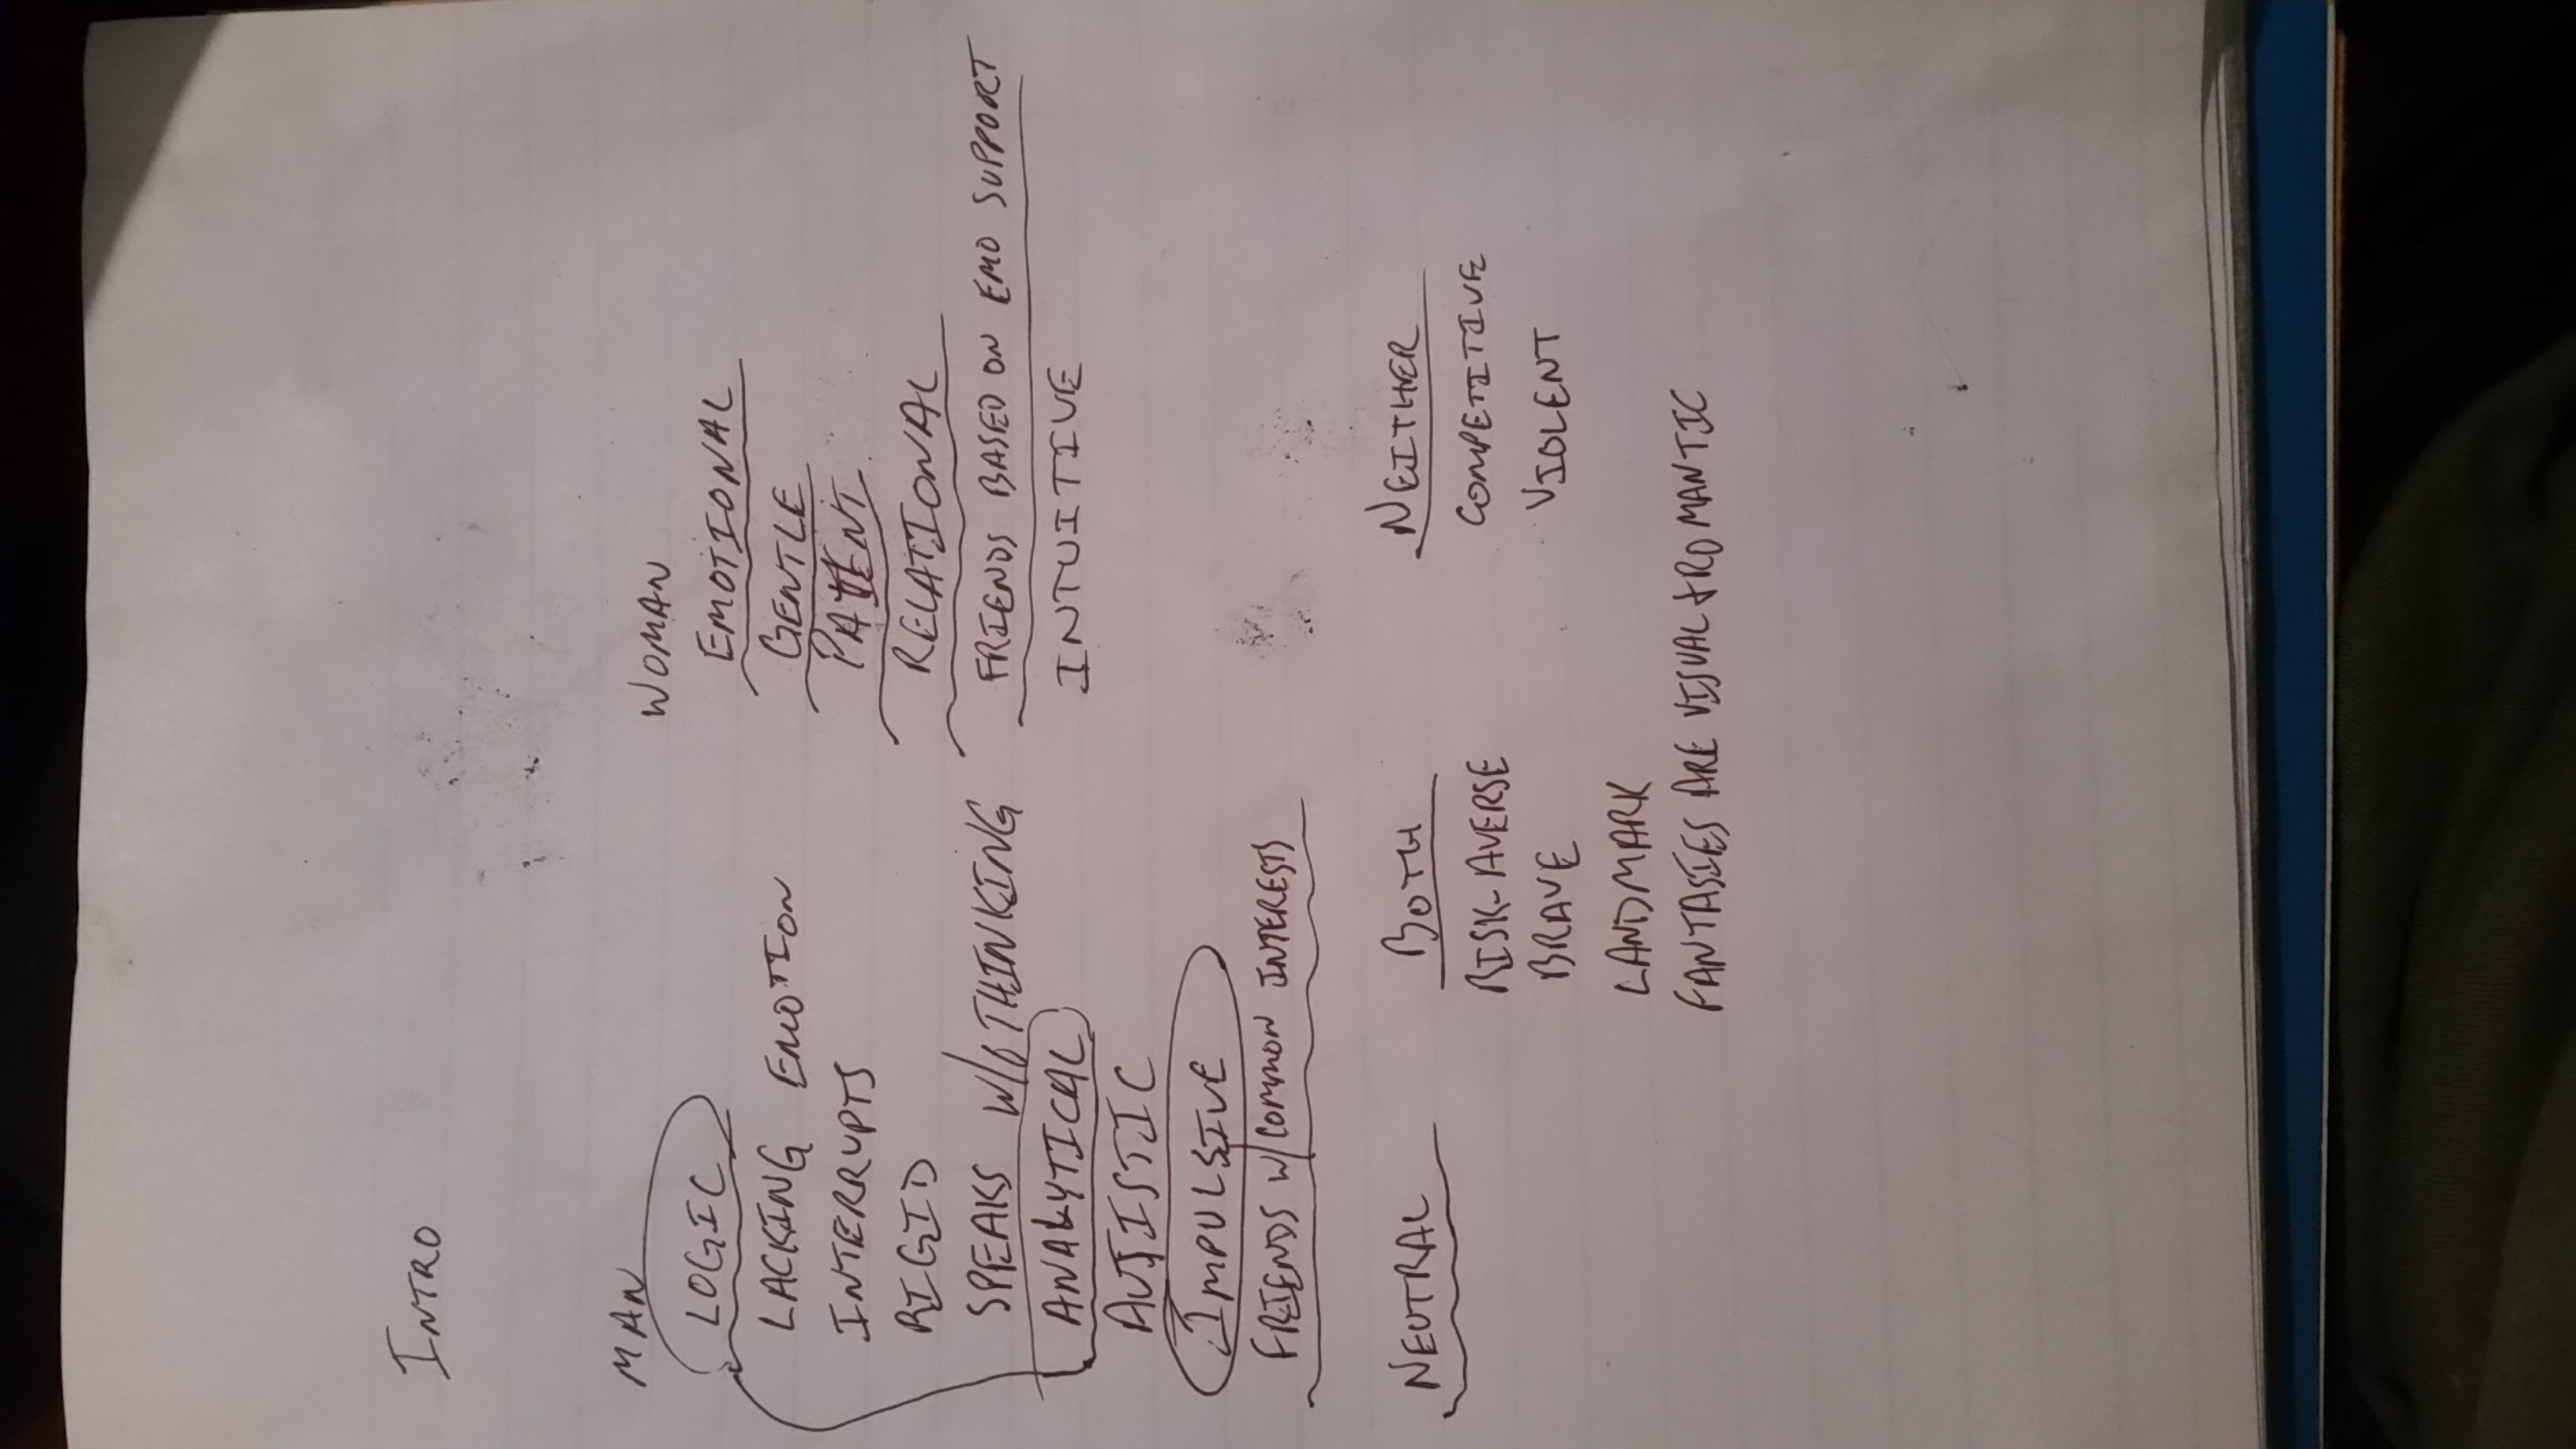 INTRO
MAN
LOGIC
LACKING EMOTION
INTERRUPTS
RIGID
SPEAKS W/O THINKING
ANALYTICAL
AUTISTIC
IMPULSIVE
FRIENDS W/ COMMON INTERESTS
WOMAN
EMOTIONAL
GENTLE
PATIENT
RELATIONAL
FRIENDS BASED ON EMO SUPPORT
INTUITIVE
NEUTRAL
BOTH
RISK-AVERSE
BRAVE
LANDMARK
FANTASIES ARE VISUAL + ROMANTIC
NEITHER
COMPETITIVE
VIOLENT